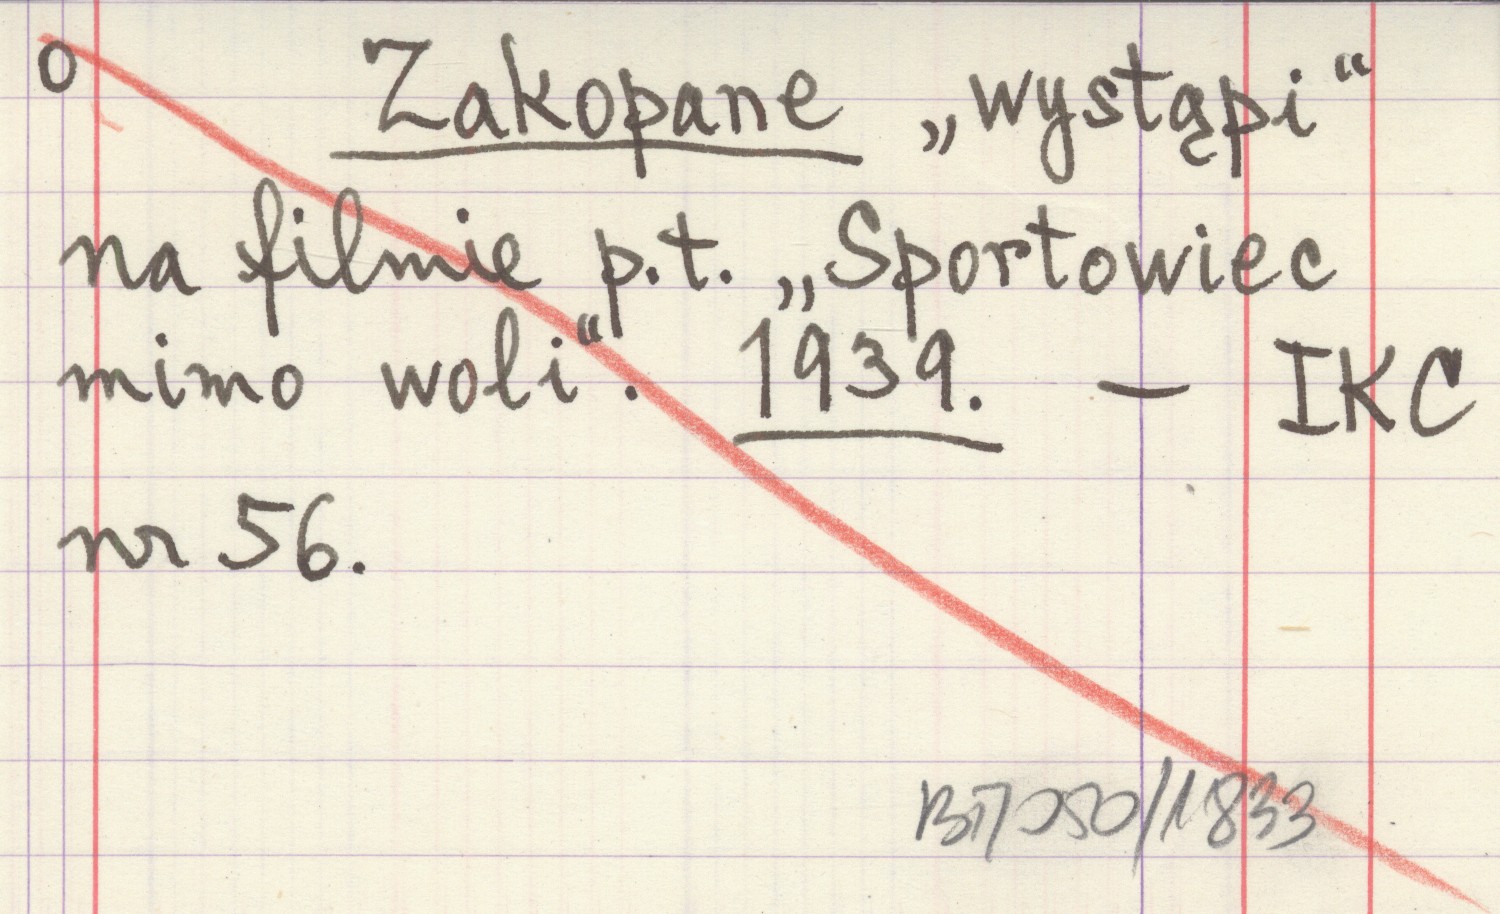 o Zakopane „wystąpi“
na filmie p.t. „Sportowiec
mimo woli“. 1939. — IKC
nr 56.